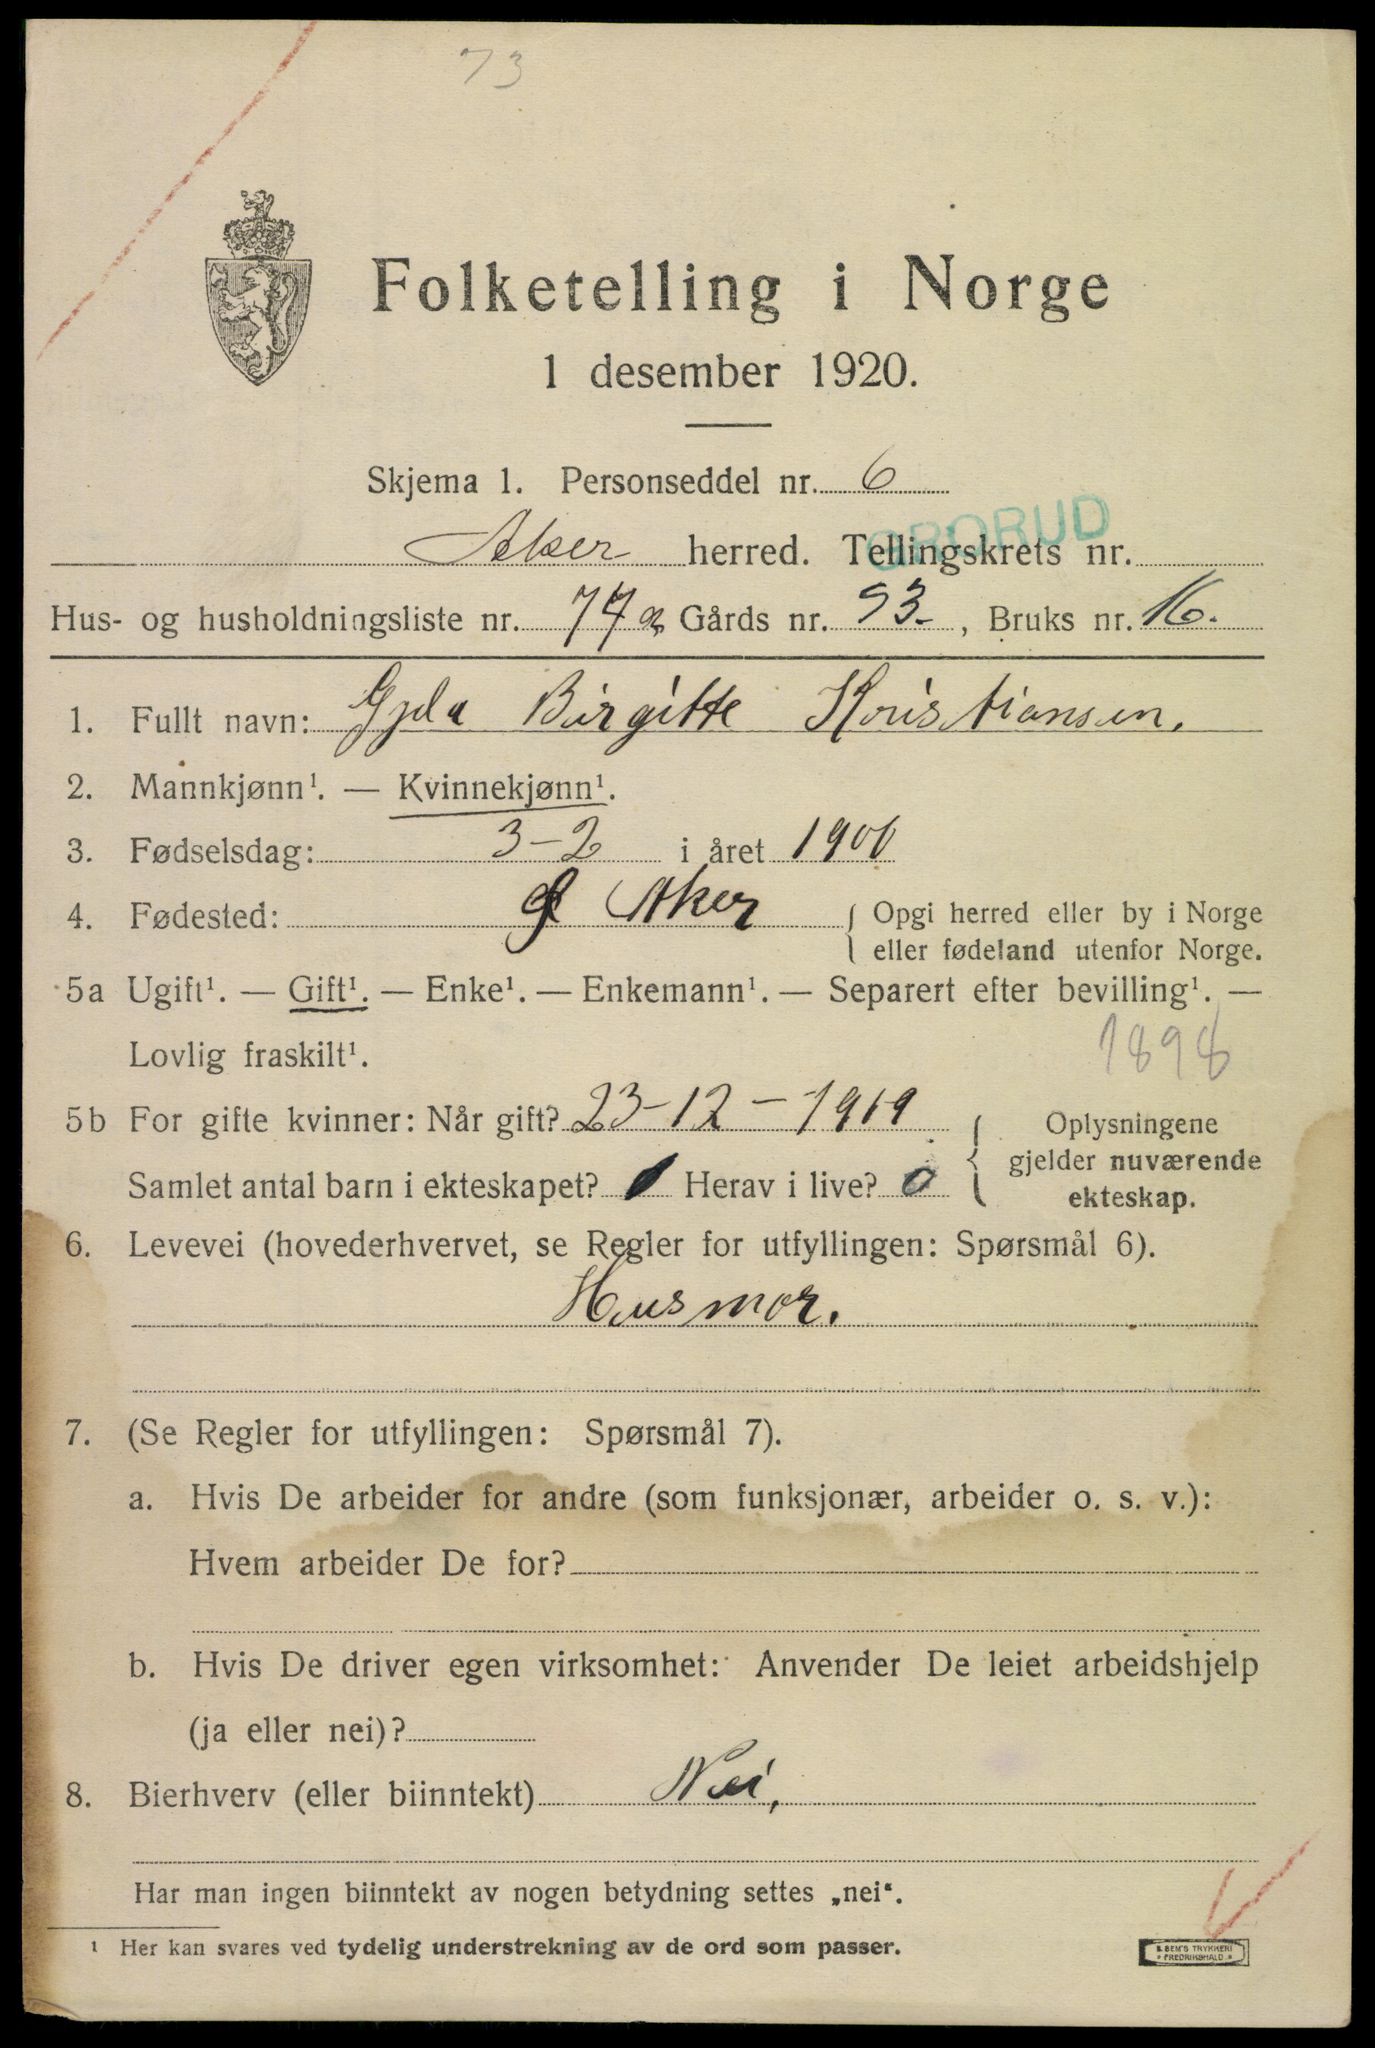 73
Folketelling i Norge
1 desember 1920.
Skjema 1. Personseddel nr. 6
GRORUD
Aker herred. Tellingskrets nr.
Hus- og husholdningsliste nr. 74a, Gårds nr. 93-, Bruks nr. 16.
1. Fullt navn: Gyda Birgitte Kristiansen.
2. Mannkjønn¹. — Kvinnekjønn¹.
3. Fødselsdag: 3-2 i året 1900
4. Fødested: Aker { Opgi herred eller by i Norge
eller fødeland utenfor Norge.
5a Ugift¹. — Gift¹. — Enke¹. — Enkemann¹. — Separert efter bevilling¹. —
Lovlig fraskilt¹.
1898
5b For gifte kvinner: Når gift? 23-12-1919 { Oplysningene
gjelder nuværende
Samlet antal barn i ekteskapet? Herav i live? 0
ekteskap.
6. Levevei (hovederhvervet, se Regler for utfyllingen: Spørsmål 6).
Husmor.
7. (Se Regler for utfyllingen: Spørsmål 7).
a. Hvis De arbeider for andre (som funksjonær, arbeider o. s. v.):
Hvem arbeider De for?
b. Hvis De driver egen virksomhet: Anvender De leiet arbeidshjelp
(ja eller nei)?
8. Bierhverv (eller biinntekt) Nei,
Har man ingen biinntekt av nogen betydning settes „nei“.
¹ Her kan svares ved tydelig understrekning av de ord som passer.
E. SEM'S TRYKKERI
* FREDRIKSHALD *